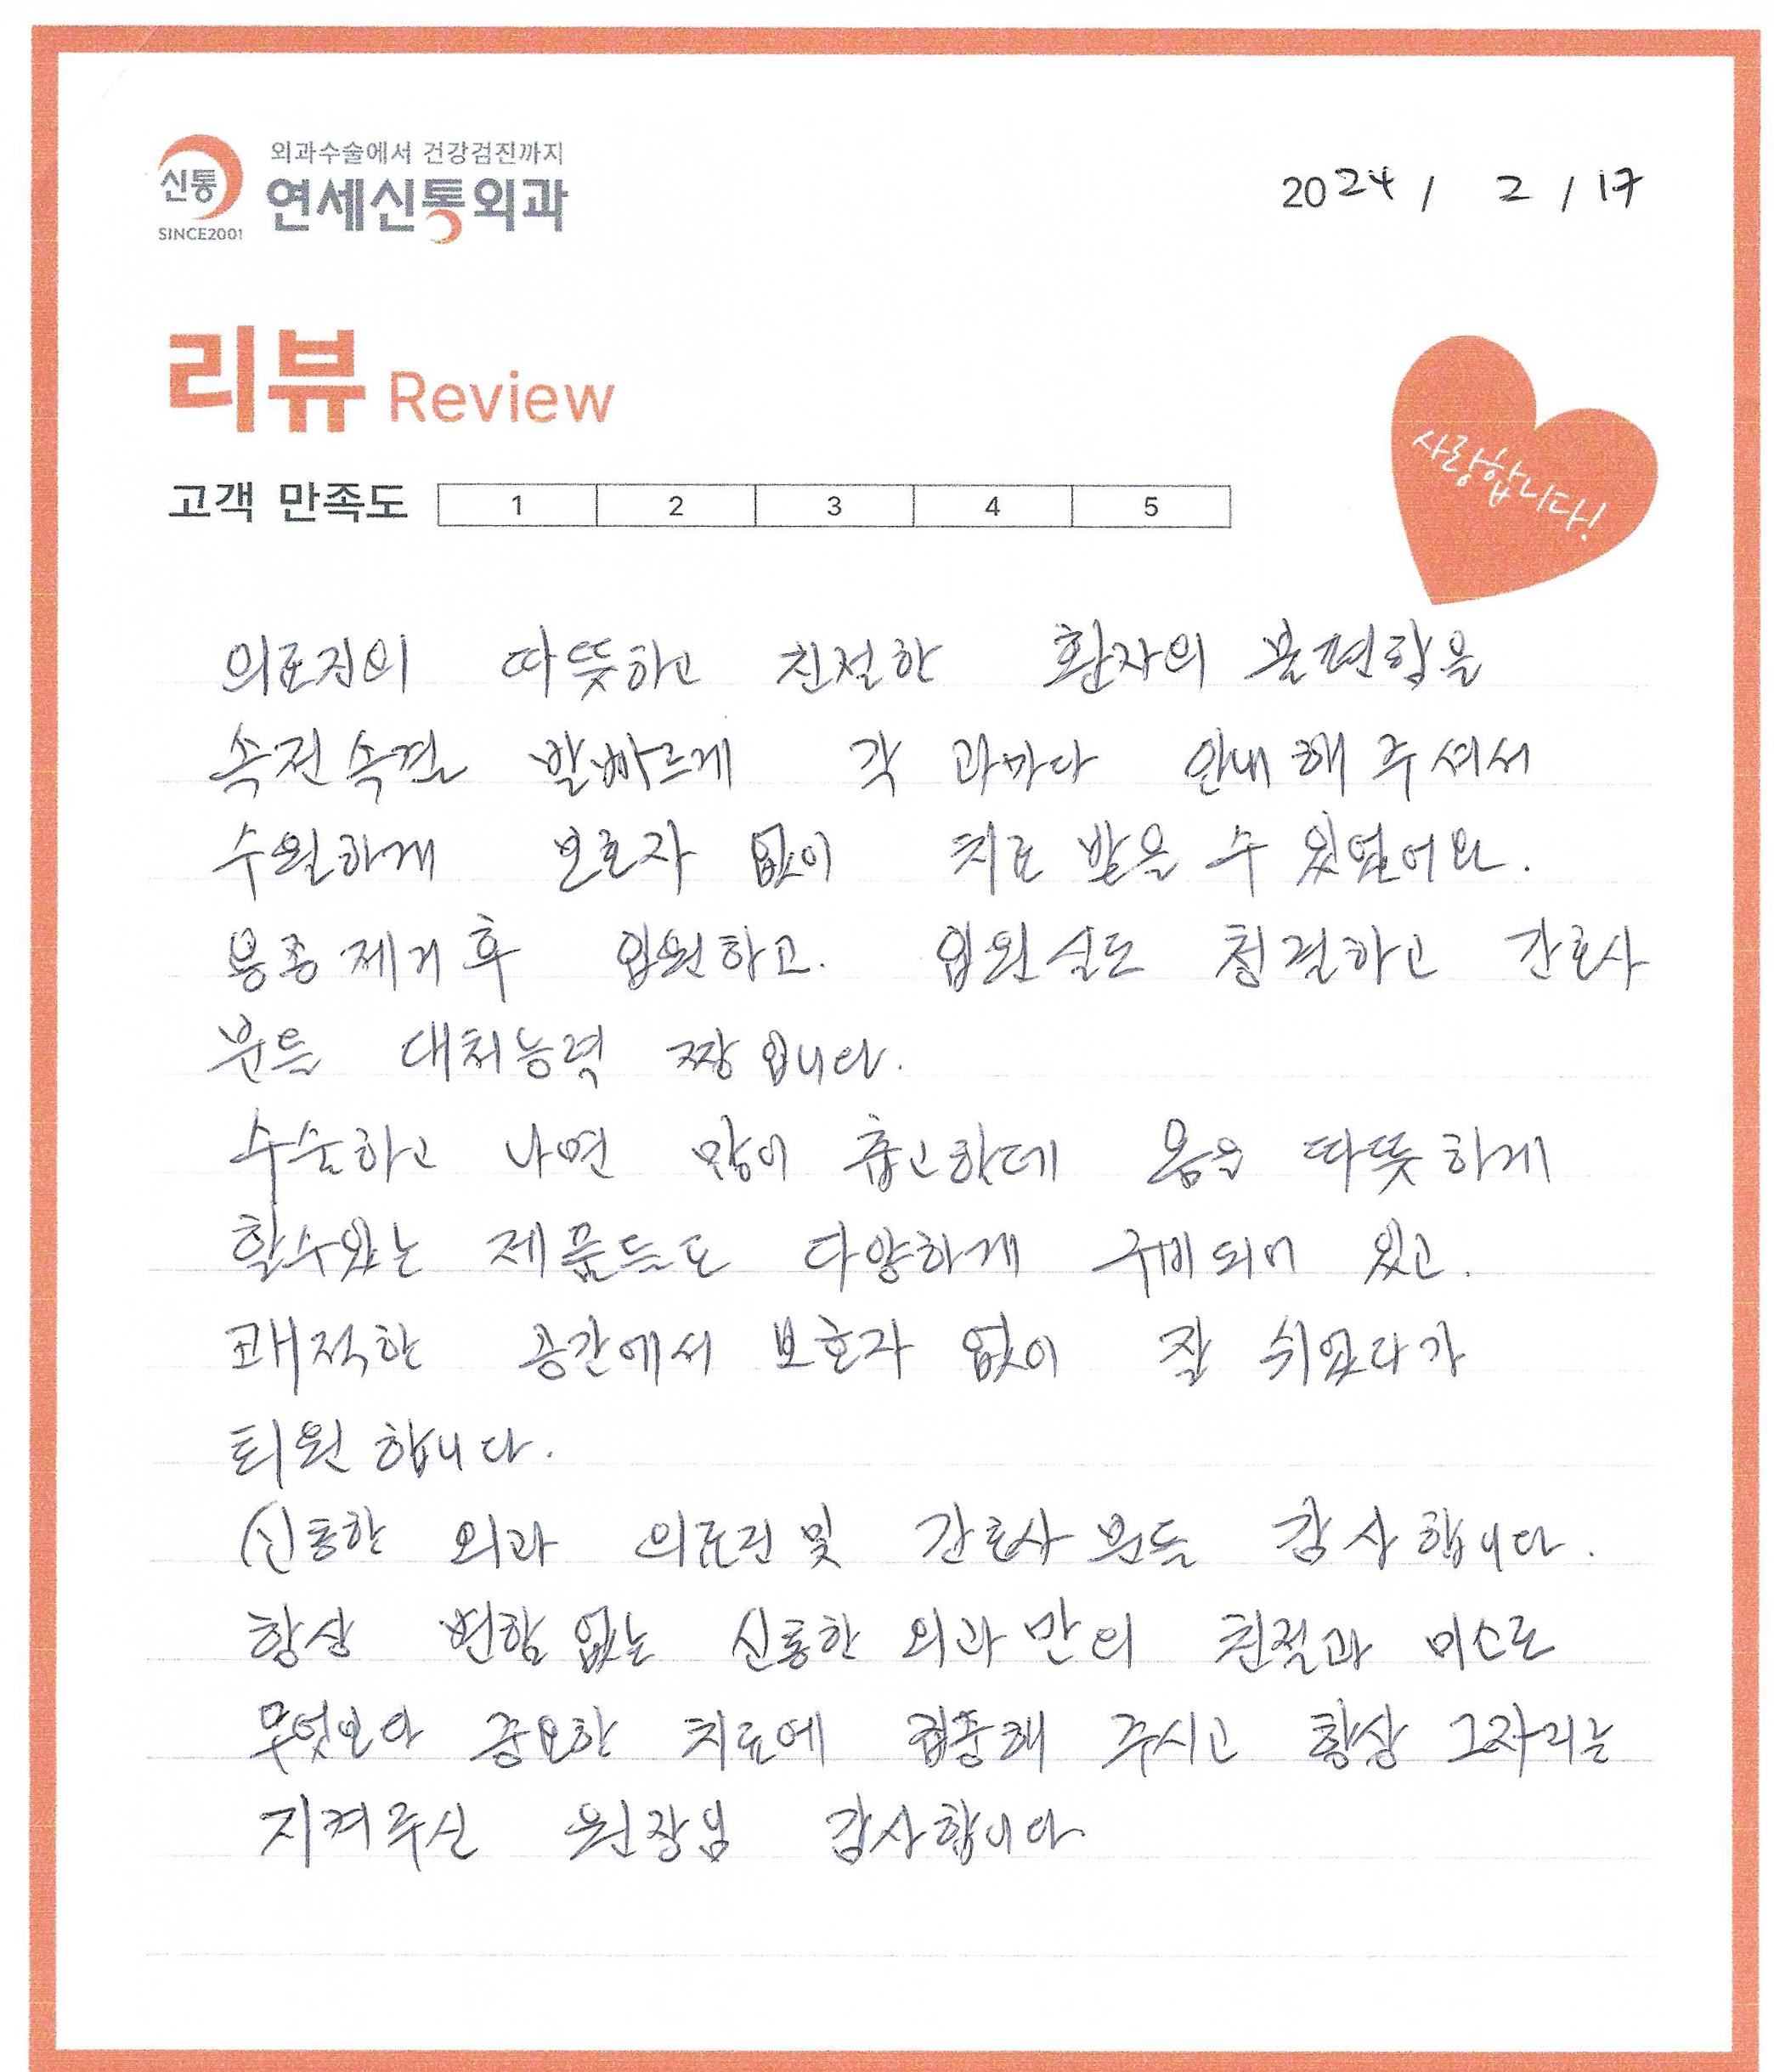 외과수술에서 건강검진까지
신통 연세신통외과
SINCE2001
2024 / 2 / 17
리뷰 Review
사랑합니다!
고객 만족도 1 2 3 4 5
의료진의 따뜻하고 친절한 환자의 불편함을
속전속결 발빠르게 각 과마다 안내해 주셔서
수월하게 보호자 없이 치료 받을 수 있었어요.
용종제거 후 입원하고. 입원실도 청결하고 간호사
분들 대처능력 짱입니다.
수술하고 나면 많이 춥고한데 몸을 따뜻하게
할수있는 제품들도 다양하게 구비되어 있고.
쾌적한 공간에서 보호자 없이 잘 쉬었다가
퇴원 합니다.
신통한 외과 의료진 및 간호사 분들 감사합니다.
항상 변함 없는 신통한 외과만의 친절과 미소로
무엇보아 중요한 치료에 집중해 주시고 항상 그자리는
지켜주신 원장님 감사합니다